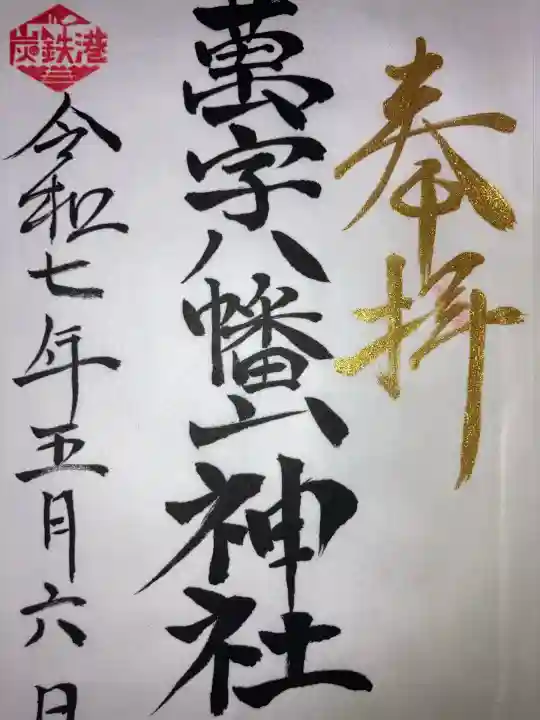 奉拝
萬字八幡神社
炭鉄港
令和七年五月六日